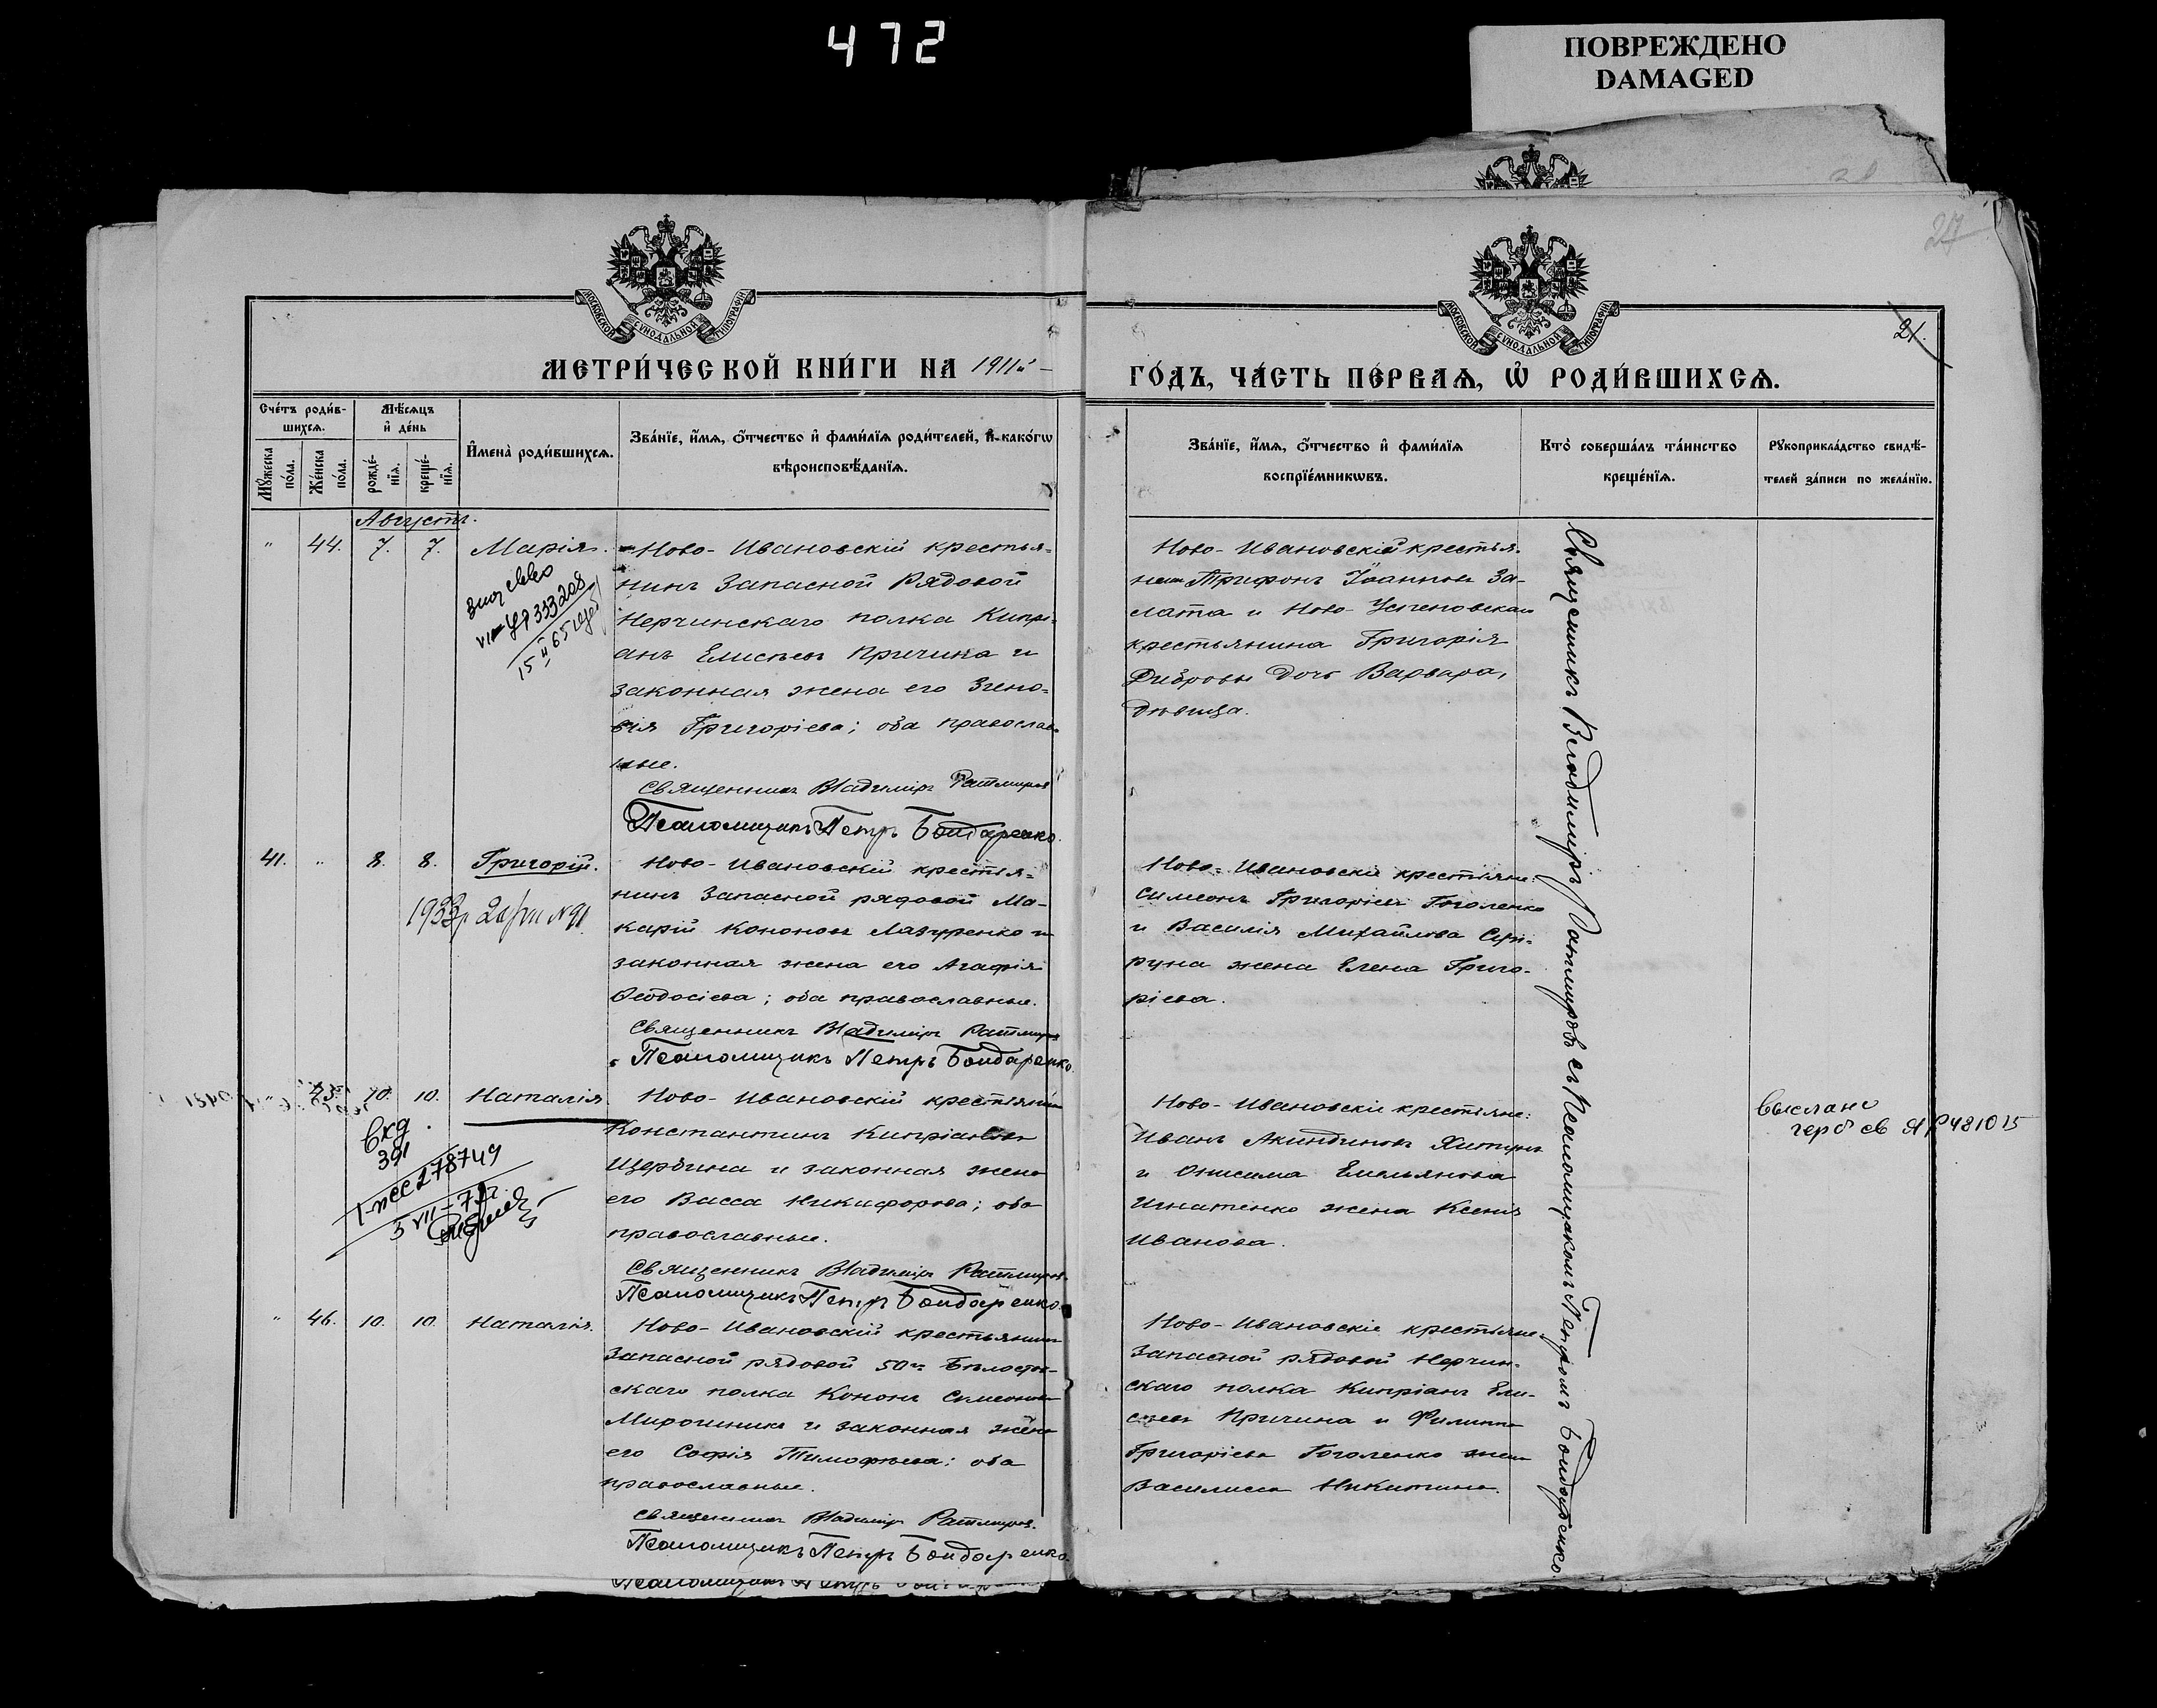 472
ПОВРЕЖДЕНО
DAMAGED
27
21.
МОСКОВСКОЙ СѴНОДАЛЬНОЙ ТИПОГРАФІИ
МОСКОВСКОЙ СѴНОДАЛЬНОЙ ТИПОГРАФІИ
МЕТРИ́ЧЕСКОЙ КНИ́ГИ НА 1911й
ГО́ДЪ, ЧА́СТЬ ПЕ́РВАѦ, Ѡ҆ РОДИ́ВШИХСѦ.
Сче́тъ роди́в-
шихсѧ.
Мꙋ́жеска по́ла.
Же́нска по́ла.
Мѣ́сѧцъ
и҆ де́нь
рожде́-
нїѧ.
креще́-
нїѧ.
И҆мена̀ роди́вшихсѧ.
Зва́нїе, и҆́мѧ, ѻ҆́тчество и҆ фами́лїѧ роди́телей, и҆ како́гѡ
вѣроисповѣ́данїѧ.
Зва́нїе, и҆́мѧ, ѻ҆́тчество и҆ фами́лїѧ
воспрїе́мникѡвъ.
Кто̀ соверша́лъ та́инство
креще́нїѧ.
Рꙋкоприкла́дство свидѣ́-
телей за́писи по жела́нїю.
Августъ.
" 44. 7. 7. Марія.
Ново-Ивановскій крестья-
нинъ Запасной Рядовой
Нерчинскаго полка Кипрі-
анъ Елисѣевъ Причина и
законная жена его Зено-
вія Григоріева; оба православ-
ные.
Священникъ Владиміръ Ратмировъ
Псаломщикъ Петръ Бондаренко.
353208
15 II 65
Ново-Ивановскій крестья-
нинъ Трифонъ Іоанновъ За-
лата и Ново-Успеновскаго
крестьянина Григорія
Дибровы дочь Варвара,
дѣвица.
41. " 8. 8. Григорій.
Ново-Ивановскій крестья-
нинъ Запасной рядовой Ма-
карій Кононовъ Лазуренко и
законная жена его Агафія
Ѳеодосіева; оба православные.
Священникъ Владиміръ Ратмировъ
Псаломщикъ Петръ Бондаренко.
Ново-Ивановскіе крестьяне:
Симеонъ Григоріевъ Гоголенко
и Василія Михайлова Сци-
руна жена Елена Григо-
ріева.
10. 10. Наталія.
Ново-Ивановскій крестьянинъ
Константинъ Кипріановъ
Щербина и законная жена
его Васса Никифорова; оба
православные.
Священникъ Владиміръ Ратмировъ.
Псаломщикъ Петръ Бондаренко.
391
278749
Ново-Ивановскіе крестьяне:
Иванъ Акиндиновъ Хитунъ
и Онисима Емельянова
Игнатенко жена Ксенія
Иванова.
выслано
герб св ЯР 481015
" 46. 10. 10. Наталія.
Ново-Ивановскій крестьянинъ
Запасной рядовой 50го Бѣлосток-
скаго полка Кононъ Симеоновъ
Мирошникъ и законная жена
его Софія Тимофѣева; оба
православные.
Священникъ Владиміръ Ратмировъ.
Псаломщикъ Петръ Бондаренко.
Ново-Ивановскіе крестьяне:
Запасной рядовой Нерчин-
скаго полка Кипріанъ Ели-
сѣевъ Причина и Филиппа
Григоріева Гоголенко жена
Василисса Никитина.
Священникъ Владиміръ Ратмировъ съ Псаломщикомъ Петромъ Бондаренко.